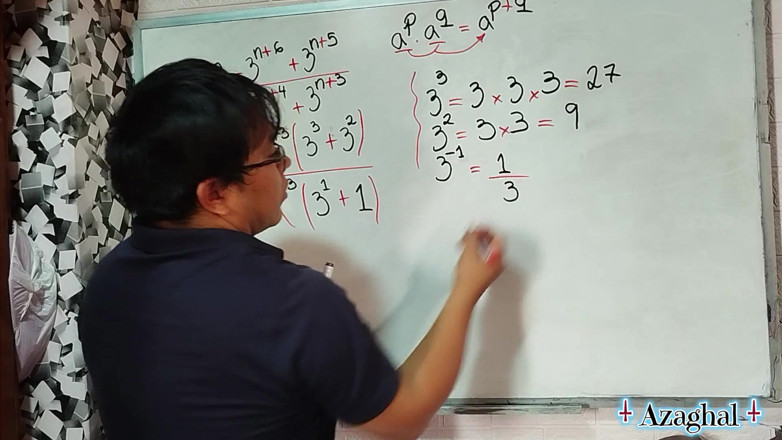 aᵖ · a^q = a^(p+q)
3^(n+6) + 3^(n+5)
+4 + 3^(n+3)
3 (3³ + 3²)
3 (3¹ + 1)
3³ = 3 × 3 × 3 = 27
3² = 3 × 3 = 9
3⁻¹ = 1/3
Azaghal